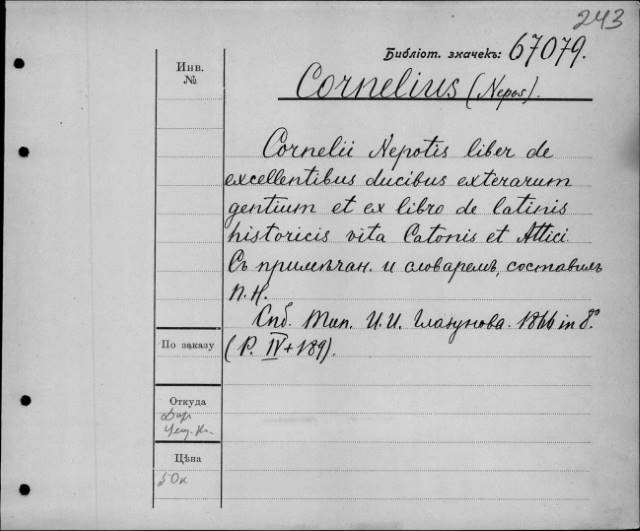 243
Библіот. значекъ: 67079.
Инв.
№
Cornelius (Nepos).
Cornelii Nepotis liber de
excellentibus ducibus exterarum
gentium et ex libro de latinis
historicis vita Catonis et Attici.
Съ примѣчан. и словаремъ, составилъ
П. Н.
Спб. Тип. И. И. Глазунова. 1866 in 8.°
По заказу
(P. IV + 189).
Откуда
Дар
Цѣна
50к